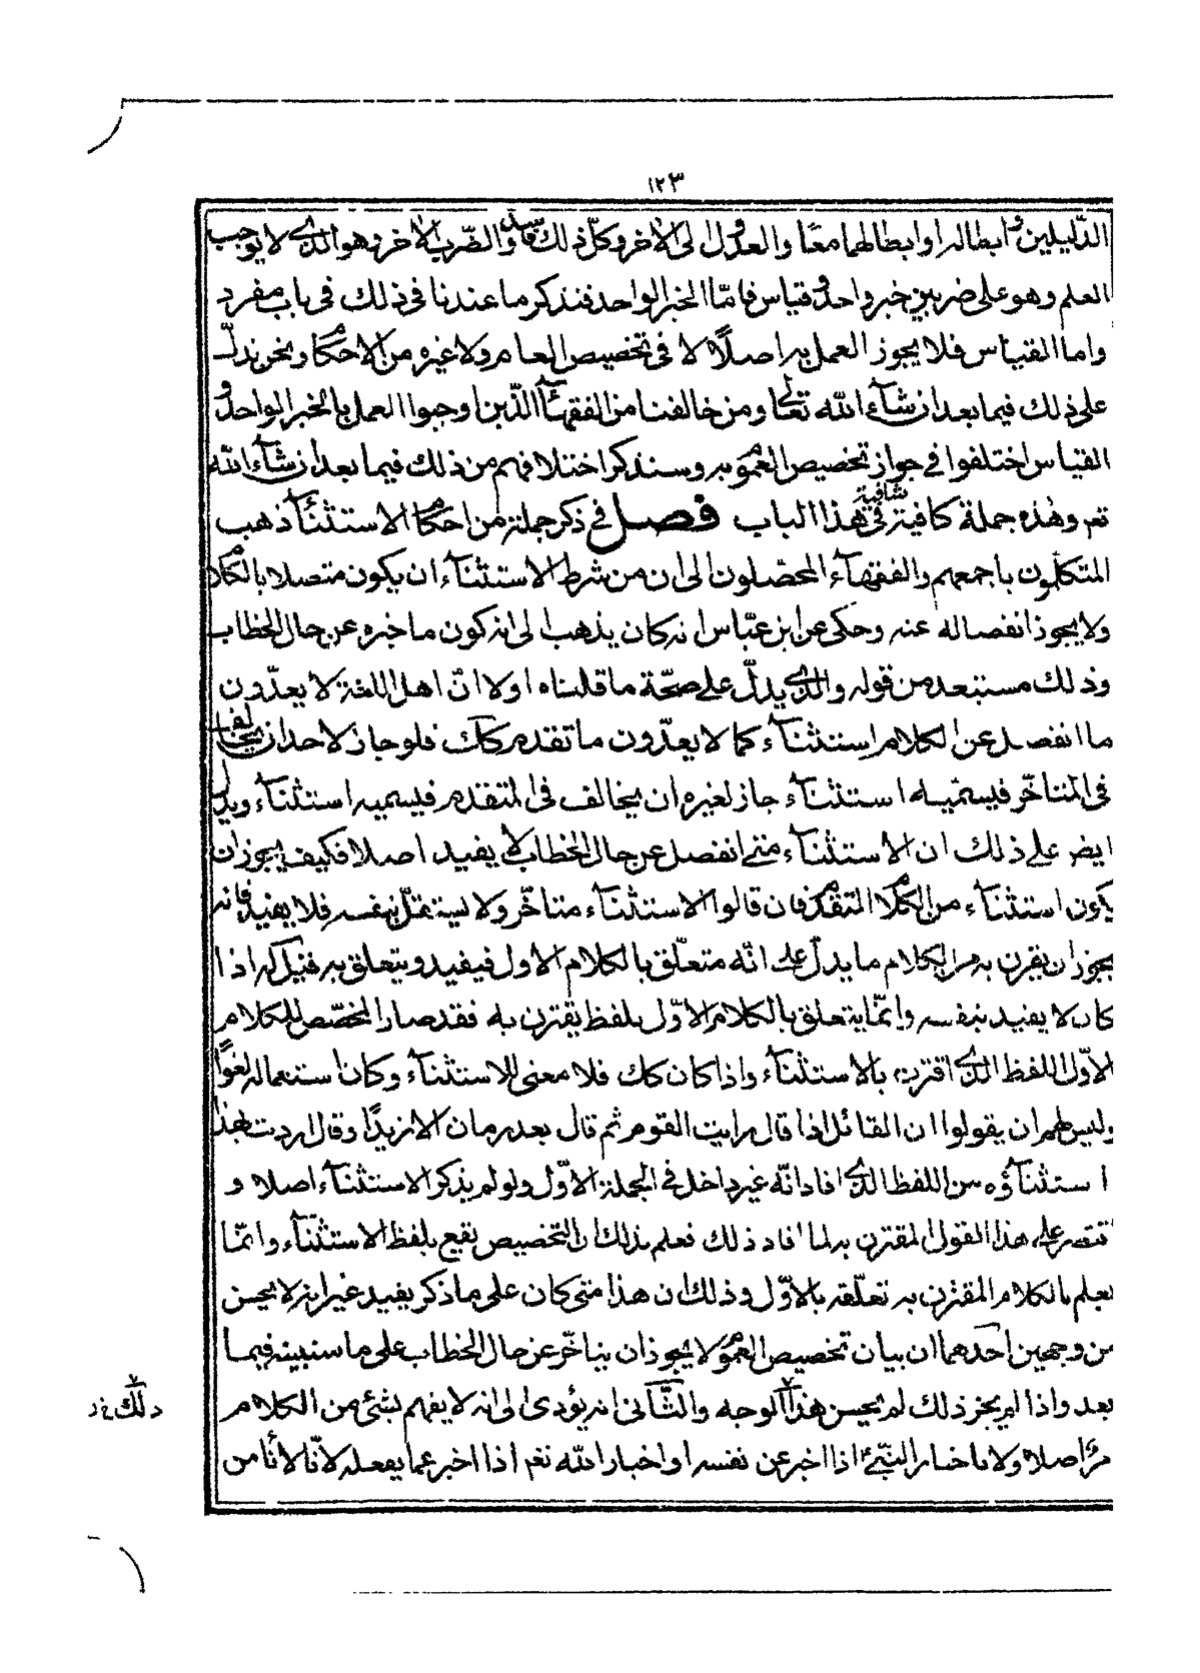 ١٢٣
الدّليلين و ابطاله او ابطالهما معًا والعدول الى الاخر وكلّ ذلك فاسد والضّرب الاخر وهو الذى لا يوجب
العلم وهو على ضربين خبر واحد و قياس فامّا الخبر الواحد فنذكر ما عندنا فى ذلك فى باب مفرد
واما القياس فلا يجوز العمل به اصلًا لا فى تخصيص العام ولا غيره من الاحكام ونحن ندلّ
على ذلك فيما بعد ان شاء الله تعالى ومن خالفنا من الفقهآء الّذين اوجبوا العمل بالخبر الواحد و
القياس اختلفوا فى جواز تخصيص العموم به وسنذكر اختلافهم من ذلك فيما بعد ان شاء الله
تعم وهذه جملة كافية شافية فى هذا الباب فصل فى ذكر جملة من احكام الاستثنآء ذهب
المتكلّمون باجمعهم والفقهآء المحصّلون الى ان من شرط الاستثنآء ان يكون متصلا بالكلام
ولا يجوز انفصاله عنه وحكى عن ابن عبّاس انه كان يذهب الى انه كون ما خبره عن حال الخطاب
وذلك مستبعد من قوله والذى يدلّ على صحّة ما قلناه اولا انّ اهل اللغة لا يعدّون
ما انفصل عن الكلام استثنآء كما لا يعدّون ما تقدم كك فلو جاز لاحد ان يخالف
فى المتاخّر فيسمّيه استثنآء جاز لغيره ان يخالف فى المتقدم فيسميه استثنآء ويدل
ايض على ذلك ان الاستثنآء متى انفصل عن حال الخطاب لا يفيد اصلا فكيف يجوز ان
يكون استثنآء من الكلام المتقدم فان قالوا الاستثنآء متاخّر ولا يستقلّ بنفسه فلا يفيد فانه
يجوز ان يقرن به من الكلام ما يدلّ على انّه متعلّق بالكلام الاول فيفيد ويتعلق به قيل له اذا
كان لا يفيد بنفسه وانّما يتعلق بالكلام الاوّل بلفظ يقترن به فقد صار المخصّص للكلام
الاوّل اللفظ الذى اقترن بالاستثنآء واذا كان كك فلا معنى للاستثنآء وكان استعماله لغوًا
وليس لهم ان يقولوا ان القائل اذا قال رايت القوم ثم قال بعد زمان الا زيدًا وقال اردت بهذا
استثنآؤه من اللفظ الذى افاد انّه غير داخل فى الجملة الاوّل ولو لم يذكر الاستثنآء اصلا و
اقتصر على هذا القول المقترن به لما افاد ذلك فعلم بذلك ان التخصيص يقع بلفظ الاستثنآء وانّما
يعلم بالكلام المقترن به تعلّقه بالاوّل وذلك ان هذا متى كان على ما ذكر يفيد غير انه لا يحسن
من وجهين احدهما ان بيان تخصيص العموم لا يجوز ان يتاخّر عن حال الخطاب على ما سنبينه فيما
بعد واذا لم يجز ذلك لم يحسن هذا الوجه والثّانى انه يؤدى الى انه لا يفهم بشئ من الكلام
اصلا ولا باخبار النبىّ اذا اخبر عن نفسه او اخبار الله تعم اذا اخبر عما يفعله لانّا لا نامن